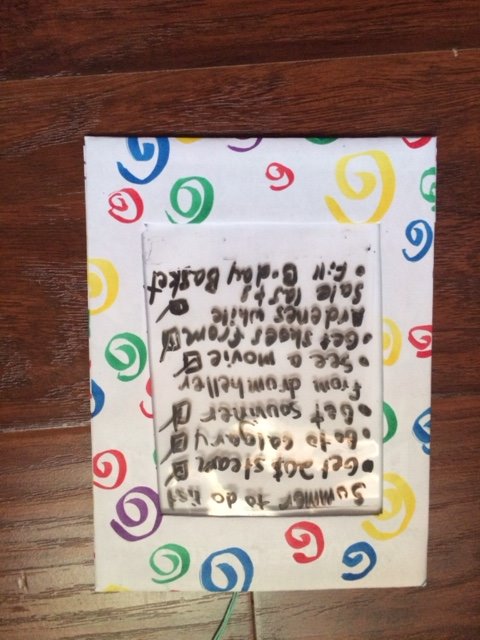 Summer to do list
• Get 20$ steam
• Go to calgary
• Get souviner
from drumheller
• See a movie
• Get shoes from
Ardenes while
Sale lasts
• Fill B-day Basket